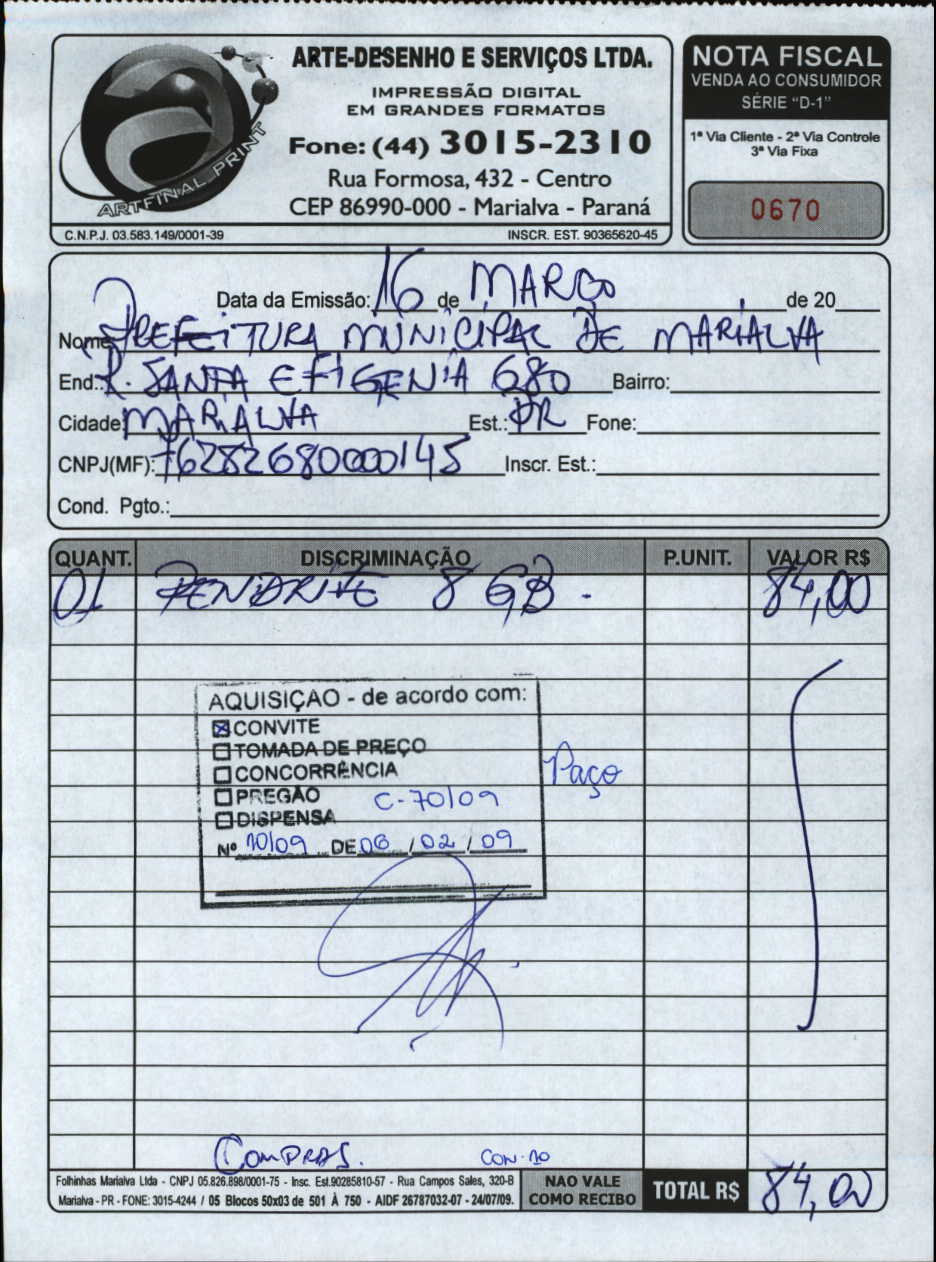 ARTE-DESENHO E SERVIÇOS LTDA.
IMPRESSÃO DIGITAL
EM GRANDES FORMATOS
Fone: (44) 3015-2310
Rua Formosa, 432 - Centro
CEP 86990-000 - Marialva - Paraná
ARTFINAL PRINT
C.N.P.J. 03.583.149/0001-39 INSCR. EST. 90365620-45
NOTA FISCAL
VENDA AO CONSUMIDOR
SÉRIE "D-1"
1ª Via Cliente - 2ª Via Controle
3ª Via Fixa
0670
Data da Emissão: 16 de MARÇO de 20
Nome PREFEITURA MUNICIPAL DE MARIALVA
End: R. SANTA EFIGENIA 680 Bairro:
Cidade: MARIALVA Est.: PR Fone:
CNPJ(MF): 76282680000145 Inscr. Est.:
Cond. Pgto.:
QUANT. DISCRIMINAÇÃO P.UNIT. VALOR R$
01 PENDRIVE 8 GB. 84,00
AQUISIÇAO - de acordo com:
CONVITE
TOMADA DE PREÇO
CONCORRÊNCIA
Paço
PREGÃO C-70/09
DISPENSA
Nº 10/09 DE 06 / 02 / 09
COMPRAS. CON-10
Folhinhas Marialva Ltda - CNPJ 05.826.898/0001-75 - Insc. Est.90285810-57 - Rua Campos Sales, 320-B
Marialva - PR - FONE: 3015-4244 / 05 Blocos 50x03 de 501 À 750 - AIDF 26787032-07 - 24/07/09.
NAO VALE
COMO RECIBO
TOTAL R$ 84,00